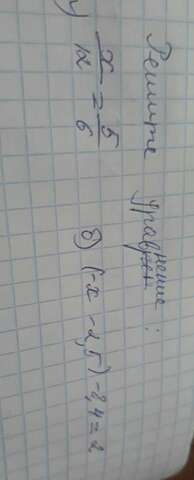 Решите уравнение:
) x/12 = 5/6
б) (-x - 2,5) - 8,4 = 2